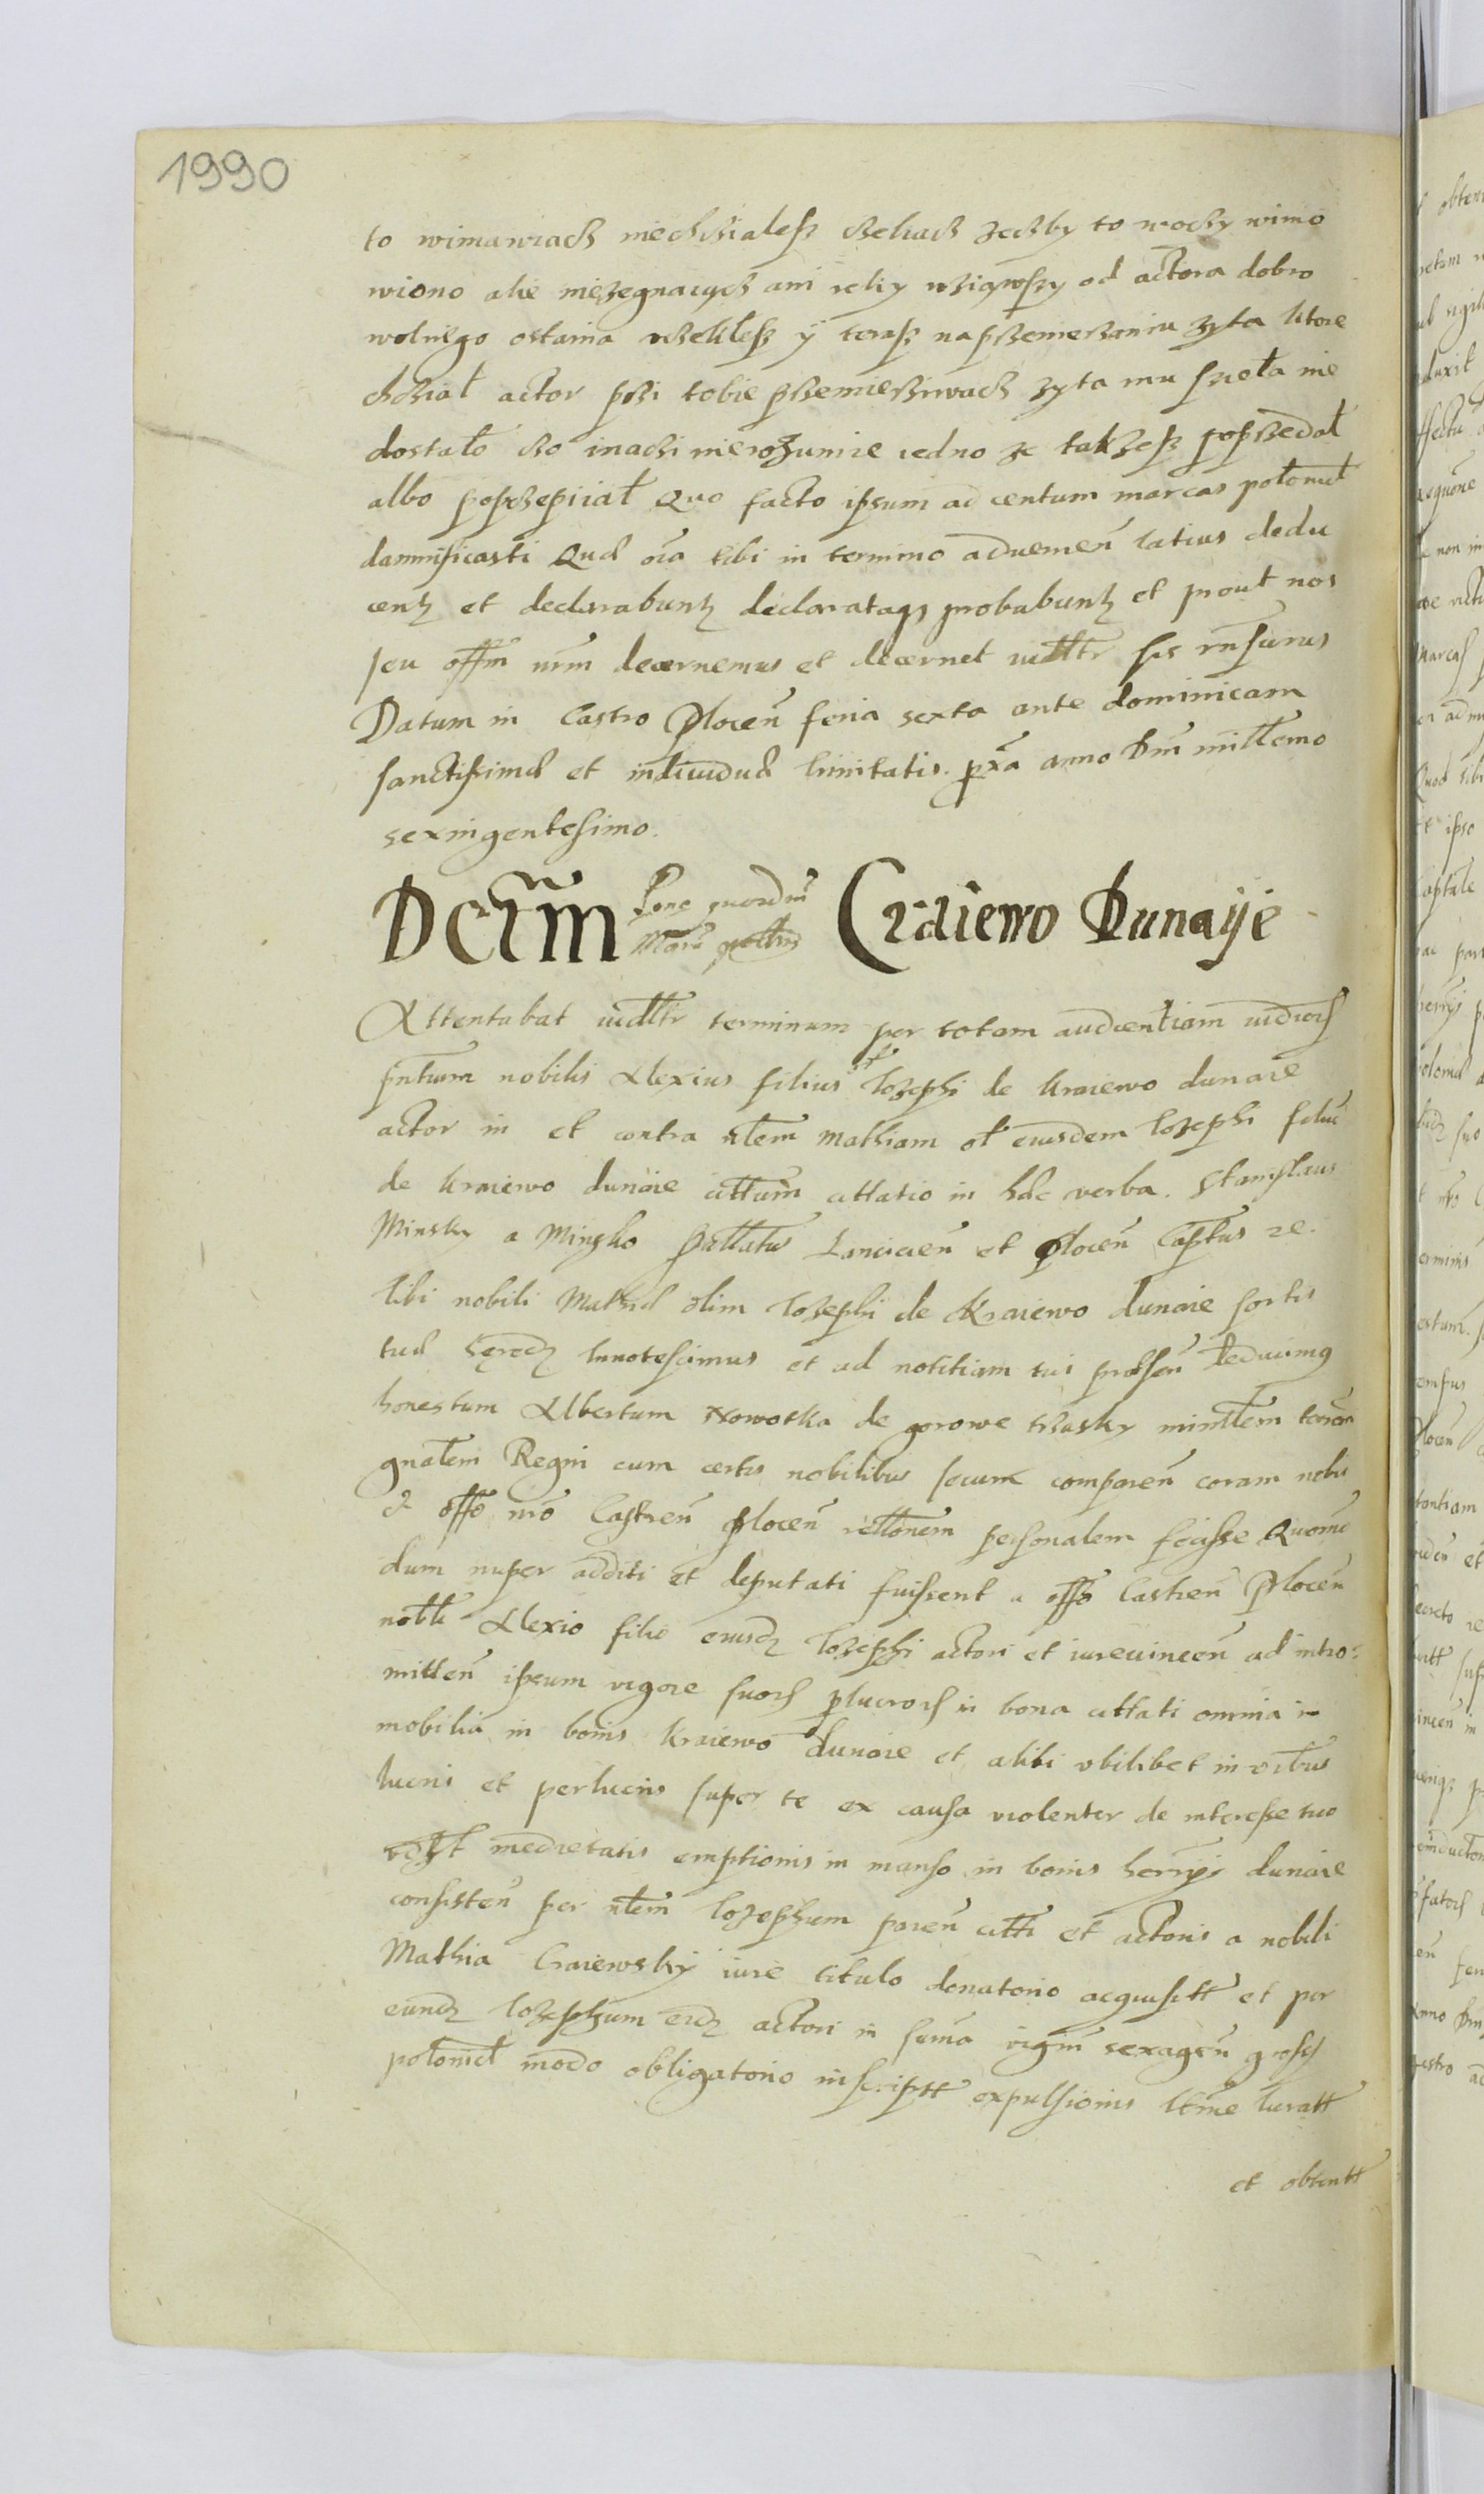 1990
to wimawiach niechcialesz czekach zechby to woczy wimo
wiono ale niezegnaiąch ani ieliy wziąwszy od actora dobro
wolnego ostania uczekłesz ÿ teraz na przemierzaniu zyta ktore
chcział actor przi tobie przemierziwach zyta mu szieła nie
dostało czo inaczi nierozumie iedno ze takzesz poprzedał
albo poprzepiiał Quo facto ipsum ad centum marcas polonicał
damnificasti Quæ oīa tibi in termino advenien̄ latius dedu
centʒ et declarabuntʒ declarataqʒ probabuntʒ et prout nos
seu offm nr̄m decernemus et decernet iudltr sis rnsurus
Datum in Castro Plocen̄ feria sexta ante dominicam
sanctissimæ et individuæ trinitatis px̄a anno Dn̄i millemo
sexingentesimo.
Dcr̄m
Craiewo Dunaÿe
Attentabat iudltr terminum per totam audientiam iudiciorʒ
pn̄tium nobilis Alexius filius Iozephi de Kraiewo dunaie
actor in et contra nlem Mathiam ol eiusdem Iozephi filiū
de Kraiewo dunaie cittum cittatio in hæc verba. Stanislaus
Minsky a Minsko Pallatus Lancicien̄ et Plocen̄ Captus ꝛc.
tibi nobili Mathiæ olim Iozephi de Kraiewo dunaie sortis
tuæ heredʒ Innotescimus et ad notitiam tui prӕsen̄ deducimꝯ
honestum Albertum Nowotka de gorowe trzasky minllem terrar̄
gnalem Regni cum certis nobilibus secum comparen̄ coram nobis
et offo nr̄o Castren̄ Plocen̄ rellonem personalem fecisse Quomo
dum nuper additi et deputati fuissent a offo Castren̄ Plocen̄
nobli Alexio filio eiusdʒ Iozephi actori et iurevincen̄ ad intro=
mitten̄ ipsum vigore suorʒ plucrorʒ in bona cittati omnia im
mobilia in bonis Kraiewo dunaie et alibi ubilibet in vi
lucri et perlucris super te ex causa violenter de interesse tuo
medietatis emptionis in manso in bonis herrijs dunaie
consisten̄ per nlem Iozephum paren̄ citti et actoris a nobili
Mathia Craiewskÿ iure titulo donatorio acquisitt et per
eundʒ Iozephum eidʒ actori in suma vigin̄ sexagen̄ grossʒ
polonicał modo obligatorio inscriptt expulsionis luratt
et obtentt